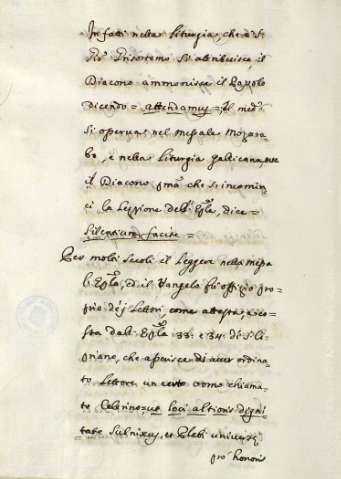 Infatti nella Liturgia, che à S.
Gio: Grisostomo si attribuisce, il
Diacono ammonisce il Popolo
dicendo = attendamus =; Il med.º
si osserva nel Messale Mozara-
bo, e nella Liturgia Gallicana, ove
il Diacono p̃ma che si incomin
ci la Lezione dell' Ep̃la, dice =
Silentium facite =
Per molti Secoli il Leggere nella Messa
l' Ep̃la, ed il Vangelo fù offizio pro-
prio dei Lettori, come attesta, e co-
sta dall' Ep̃la 33: e 34: di S. Ci-
priano, che asserisce di aver ordina-
to Lettore un certo uomo chiama-
to Celerino = ut loci altioris digni
tate subnixus, et Plebi universæ
pro honoris